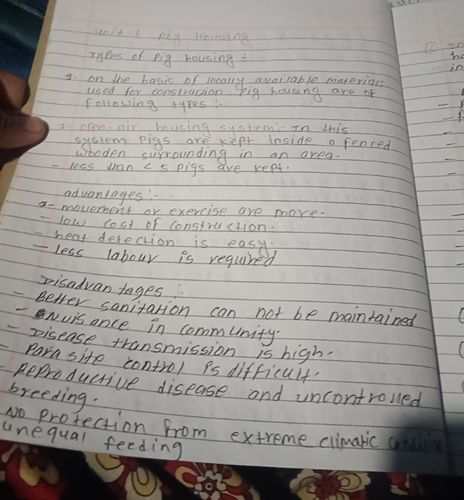 unit 6 pig Housing
Types of pig housing :-
on the basis of locally available materials
used for construction pig housing are of
following types :-
1- open-air housing system:- In this
system pigs are kept inside a fenced
wooden surrounding in an area.
- less than < 5 pigs are kept.
advantages :-
- movement or exercise are more.
- low cost of construction.
- heat detection is easy.
- less labour is required
Disadvantages :
- Better sanitation can not be maintained
- Nuisance in community.
- Disease transmission is high.
- Parasite control is difficult.
- Reproductive disease and uncontrolled
breeding.
NO protection from extreme climatic
unequal feeding